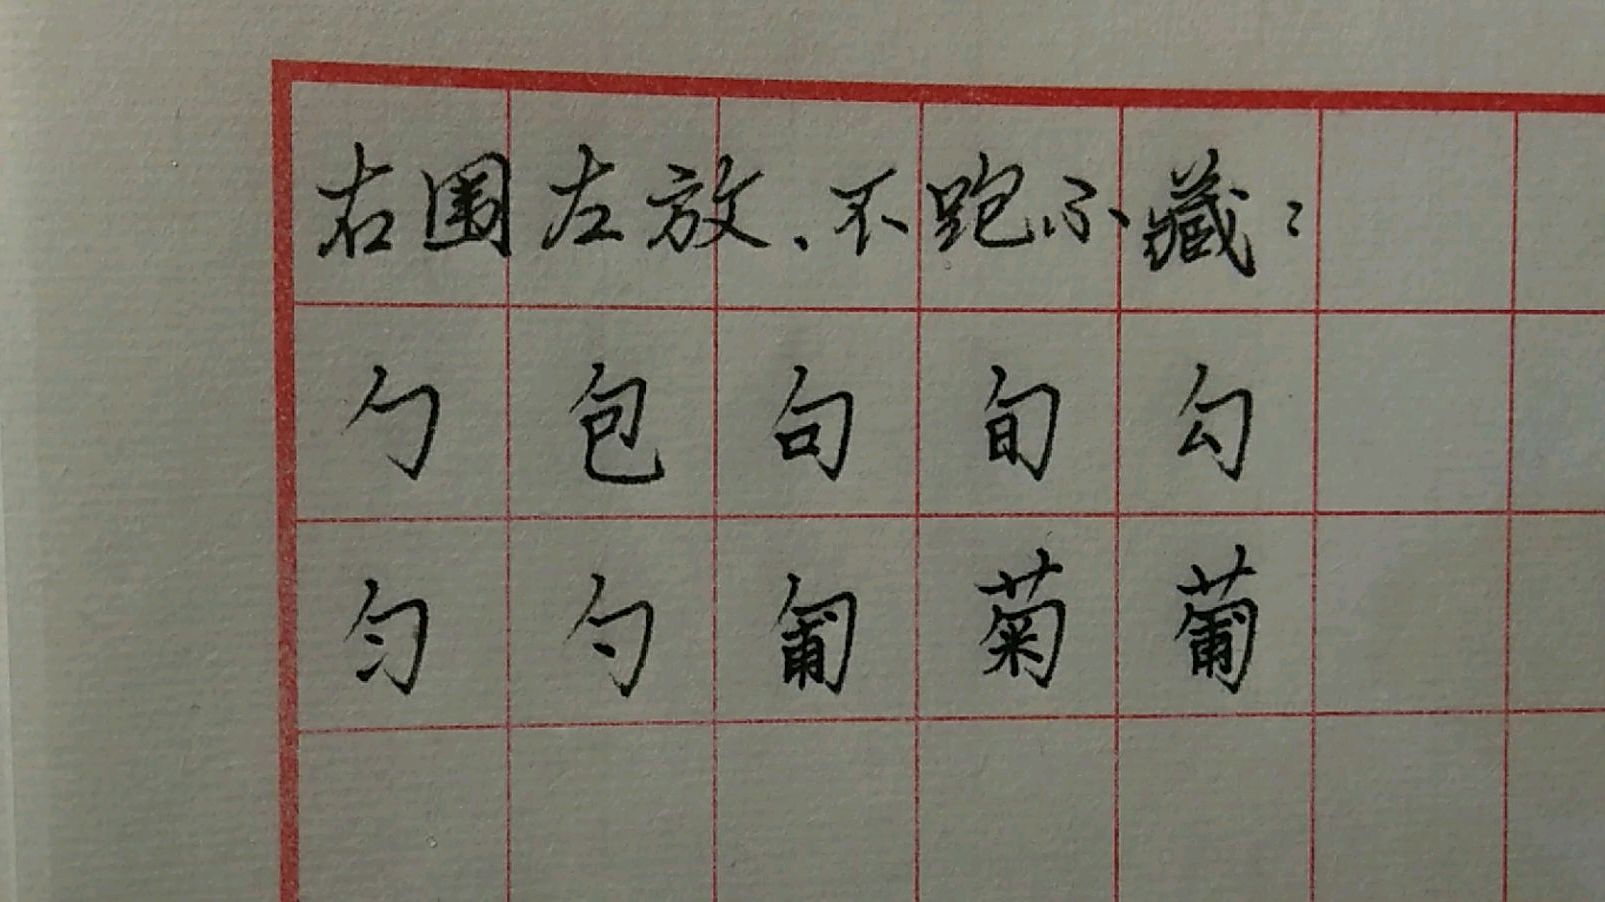 右围左放、不跑不藏：
勹包句旬勾
匀勺匍菊葡